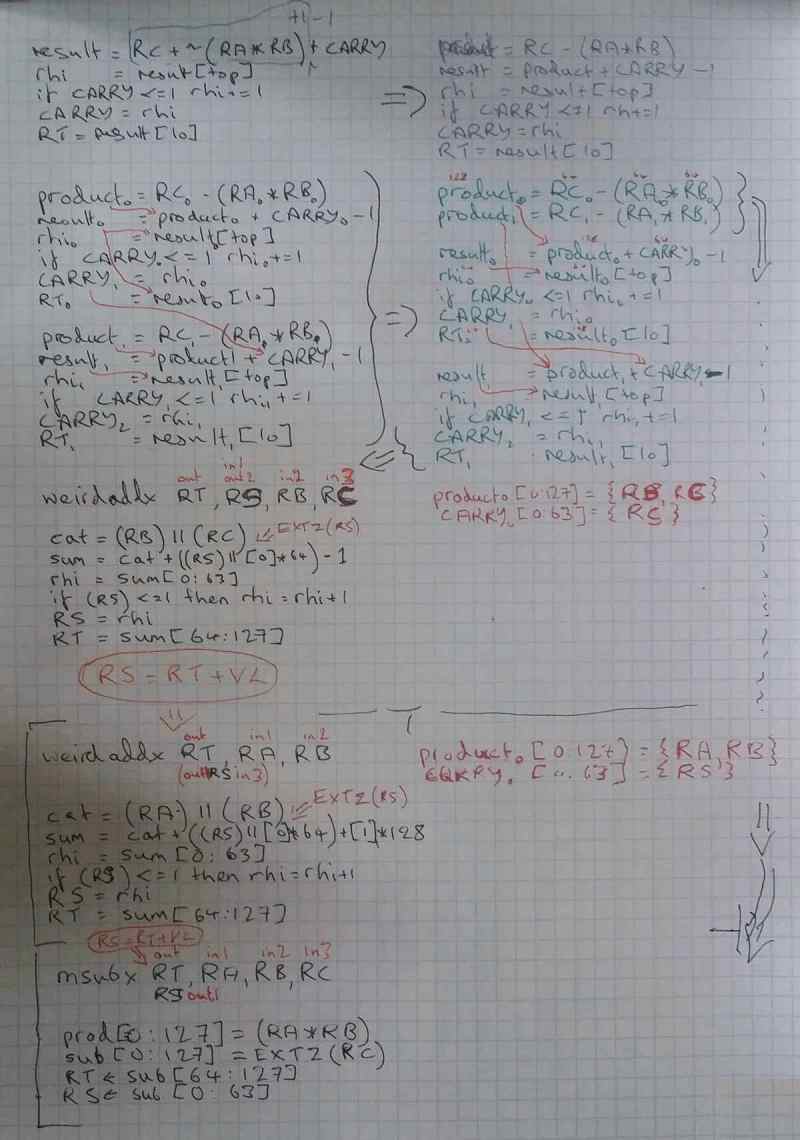 +1-1
result = RC + ~(RA*RB) + CARRY
rhi = result[top]
if CARRY <= 1 rhi += 1
CARRY = rhi
RT = result[lo]
=>
product = RC - (RA*RB)
result = product + CARRY - 1
rhi = result[top]
if CARRY <= 1 rh+=1
CARRY = rhi
RT = result[lo]
product0 = RC0 - (RA0 * RB0)
result0 = product0 + CARRY0 - 1
rhi0 = result[top]
if CARRY0 <= 1 rhi0 += 1
CARRY1 = rhi0
RT0 = result0[lo]
product1 = RC1 - (RA0 * RB0)
result1 = product1 + CARRY1 - 1
rhi1 = result1[top]
if CARRY1 <= 1 rhi1 += 1
CARRY2 = rhi1
RT1 = result1[lo]
=>
128 64 64 64
product0 = RC0 - (RA0 * RB0)
product1 = RC1 - (RA1 * RB1)
result0 = product0 + CARRY0 - 1
rhi0 = result0[top]
if CARRY0 <= 1 rhi0 += 1
CARRY1 = rhi0
RT0 = result0[lo]
result1 = product1 + CARRY1 - 1
rhi1 = result1[top]
if CARRY1 <= 1 rhi1 += 1
CARRY2 = rhi1
RT1 = result1[lo]
in1
out out2 in2 in3
weirdaddx RT, RS, RB, RC
product0[0:127] = {RB, RC}
CARRY0[0:63] = {RS}
cat = (RB) || (RC) <= EXTZ(RS)
sum = cat + ((RS) || [0]*64) - 1
rhi = sum[0:63]
if (RS) <= 1 then rhi = rhi+1
RS = rhi
RT = sum[64:127]
RS = RT + VL
out in1 in2
weirdaddx RT, RA, RB
(out RS in3)
product0[0:127] = {RA, RB}
CARRY0[0:63] = {RS}
cat = (RA) || (RB) <= EXTZ(RS)
sum = cat + ((RS) || [0]*64) + [1]*128
rhi = sum[0:63]
if (RS) <= 1 then rhi = rhi+1
RS = rhi
RT = sum[64:127]
RS = RT + VL
out in1 in2 in3
msubx RT, RA, RB, RC
RS out1
prod[0:127] = (RA*RB)
sub[0:127] = EXTZ(RC)
RT ← sub[64:127]
RS ← sub[0:63]